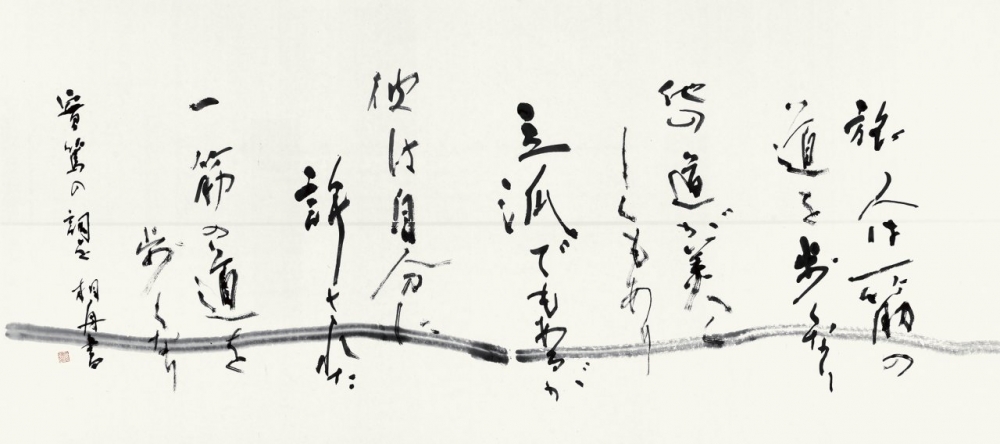 旅人は一筋の
道を歩くなり
他の道が美
しくもあり
立派でもあるが
彼は自分に
許された
一筋の道を
歩くなり
實篤の詞を 書